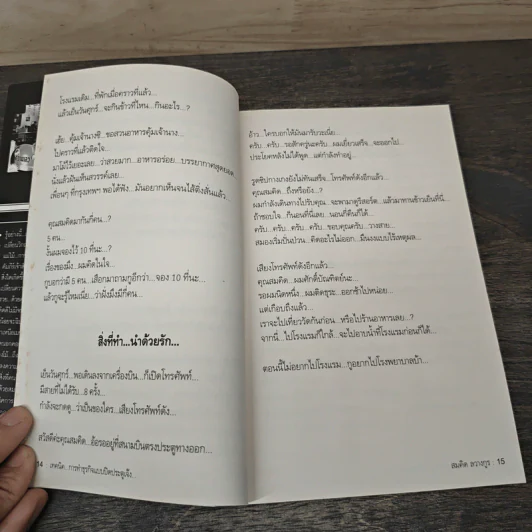 โรงแรมเดิม...ที่พักเมื่อคราวที่แล้ว...
แล้วเย็นวันศุกร์...จะกินข้าวที่ไหน...กินอะไร...?
เฮ้ย...คุ้มเจ้านางซิ...ขอสวนอาหารคุ้มเจ้านาง...
ไปคราวที่แล้วติดใจ...
มาโม้ไว้เยอะเลย...ว่าสวยมาก...อาหารอร่อย...บรรยากาศสุดยอด
นั่งแล้วฝันเห็นสวรรค์เลย...
เพื่อนๆ ที่กรุงเทพฯ พอได้ฟัง...มันอยากเห็นจนไส้ติ่งสั่นแล้ว
คุณสมคิดมากันกี่คน..?
5 คน...
งั้นผมจองไว้ 10 ที่นะ...?
เรื่องของมึง...ผมคิดในใจ...
กูบอกว่ามี 5 คน...เสือกมาถามกูอีกว่า...จอง 10 ที่นะ...
แล้วกูจะรู้ไหมเนี่ย...ว่าฝั่งมึงมีกี่คน...
สิ่งที่ทำ...นำด้วยรัก...
เย็นวันศุกร์...พอเดินลงจากเครื่องบิน...ก็เปิดโทรศัพท์...
มีสายที่ไม่ได้รับ...8 ครั้ง...
กำลังจะกดดู...ว่าเป็นของใคร...เสียงโทรศัพท์ดัง...
สวัสดีค่ะคุณสมคิด...อ้อรออยู่ที่สนามบินตรงประตูทางออก...
14 เทคนิค...การทำธุรกิจแบบปิดประตูเจ๊ง...
อ้าว...ใครบอกให้มันมารับวะเนี่ย...
ครับ...ครับ...รอสักครู่นะครับ...ผมเยี่ยวเสร็จ...จะออกไป...
ประโยคหลังไม่ได้พูด...แต่กำลังทำอยู่...
รูดซิปกางเกงยังไม่ทันเสร็จ...โทรศัพท์ดังอีกแล้ว...
คุณสมคิด...ถึงหรือยัง...?
ผมกำลังเดินทางไปรับคุณ...จะพามาดูรีสอร์ต...แล้วมาทานข้าวเย็นที่นี่...
ถ้าชอบใจ...ก็นอนที่นี่เลย...นอนกี่คืนก็ได้...
ครับ...ครับ...ครับ...ครับ...ขอบคุณครับ...วางสาย...
สมองเริ่มปั่นป่วน...คิดอะไรไม่ออก...มึนงงแบบไร้เหตุผล...
เสียงโทรศัพท์ดังอีกแล้ว...
คุณสมคิด...ผมศักดิ์บัณฑิตย์นะ...
รอผมนิดหนึ่ง...ผมติดธุระ...ออกช้าไปหน่อย...
แต่เกือบถึงแล้ว...
เราจะไปเที่ยววัดกันก่อน...หรือไปร้านอาหารเลย...?
จากนี่...ไปโรงแรมก็ใกล้...จะไปอาบน้ำที่โรงแรมก่อนก็ได้...
ตอนนี้ไม่อยากไปโรงแรม...กูอยากไปโรงพยาบาลบ้า...
สมคิด ลวางกูร 15